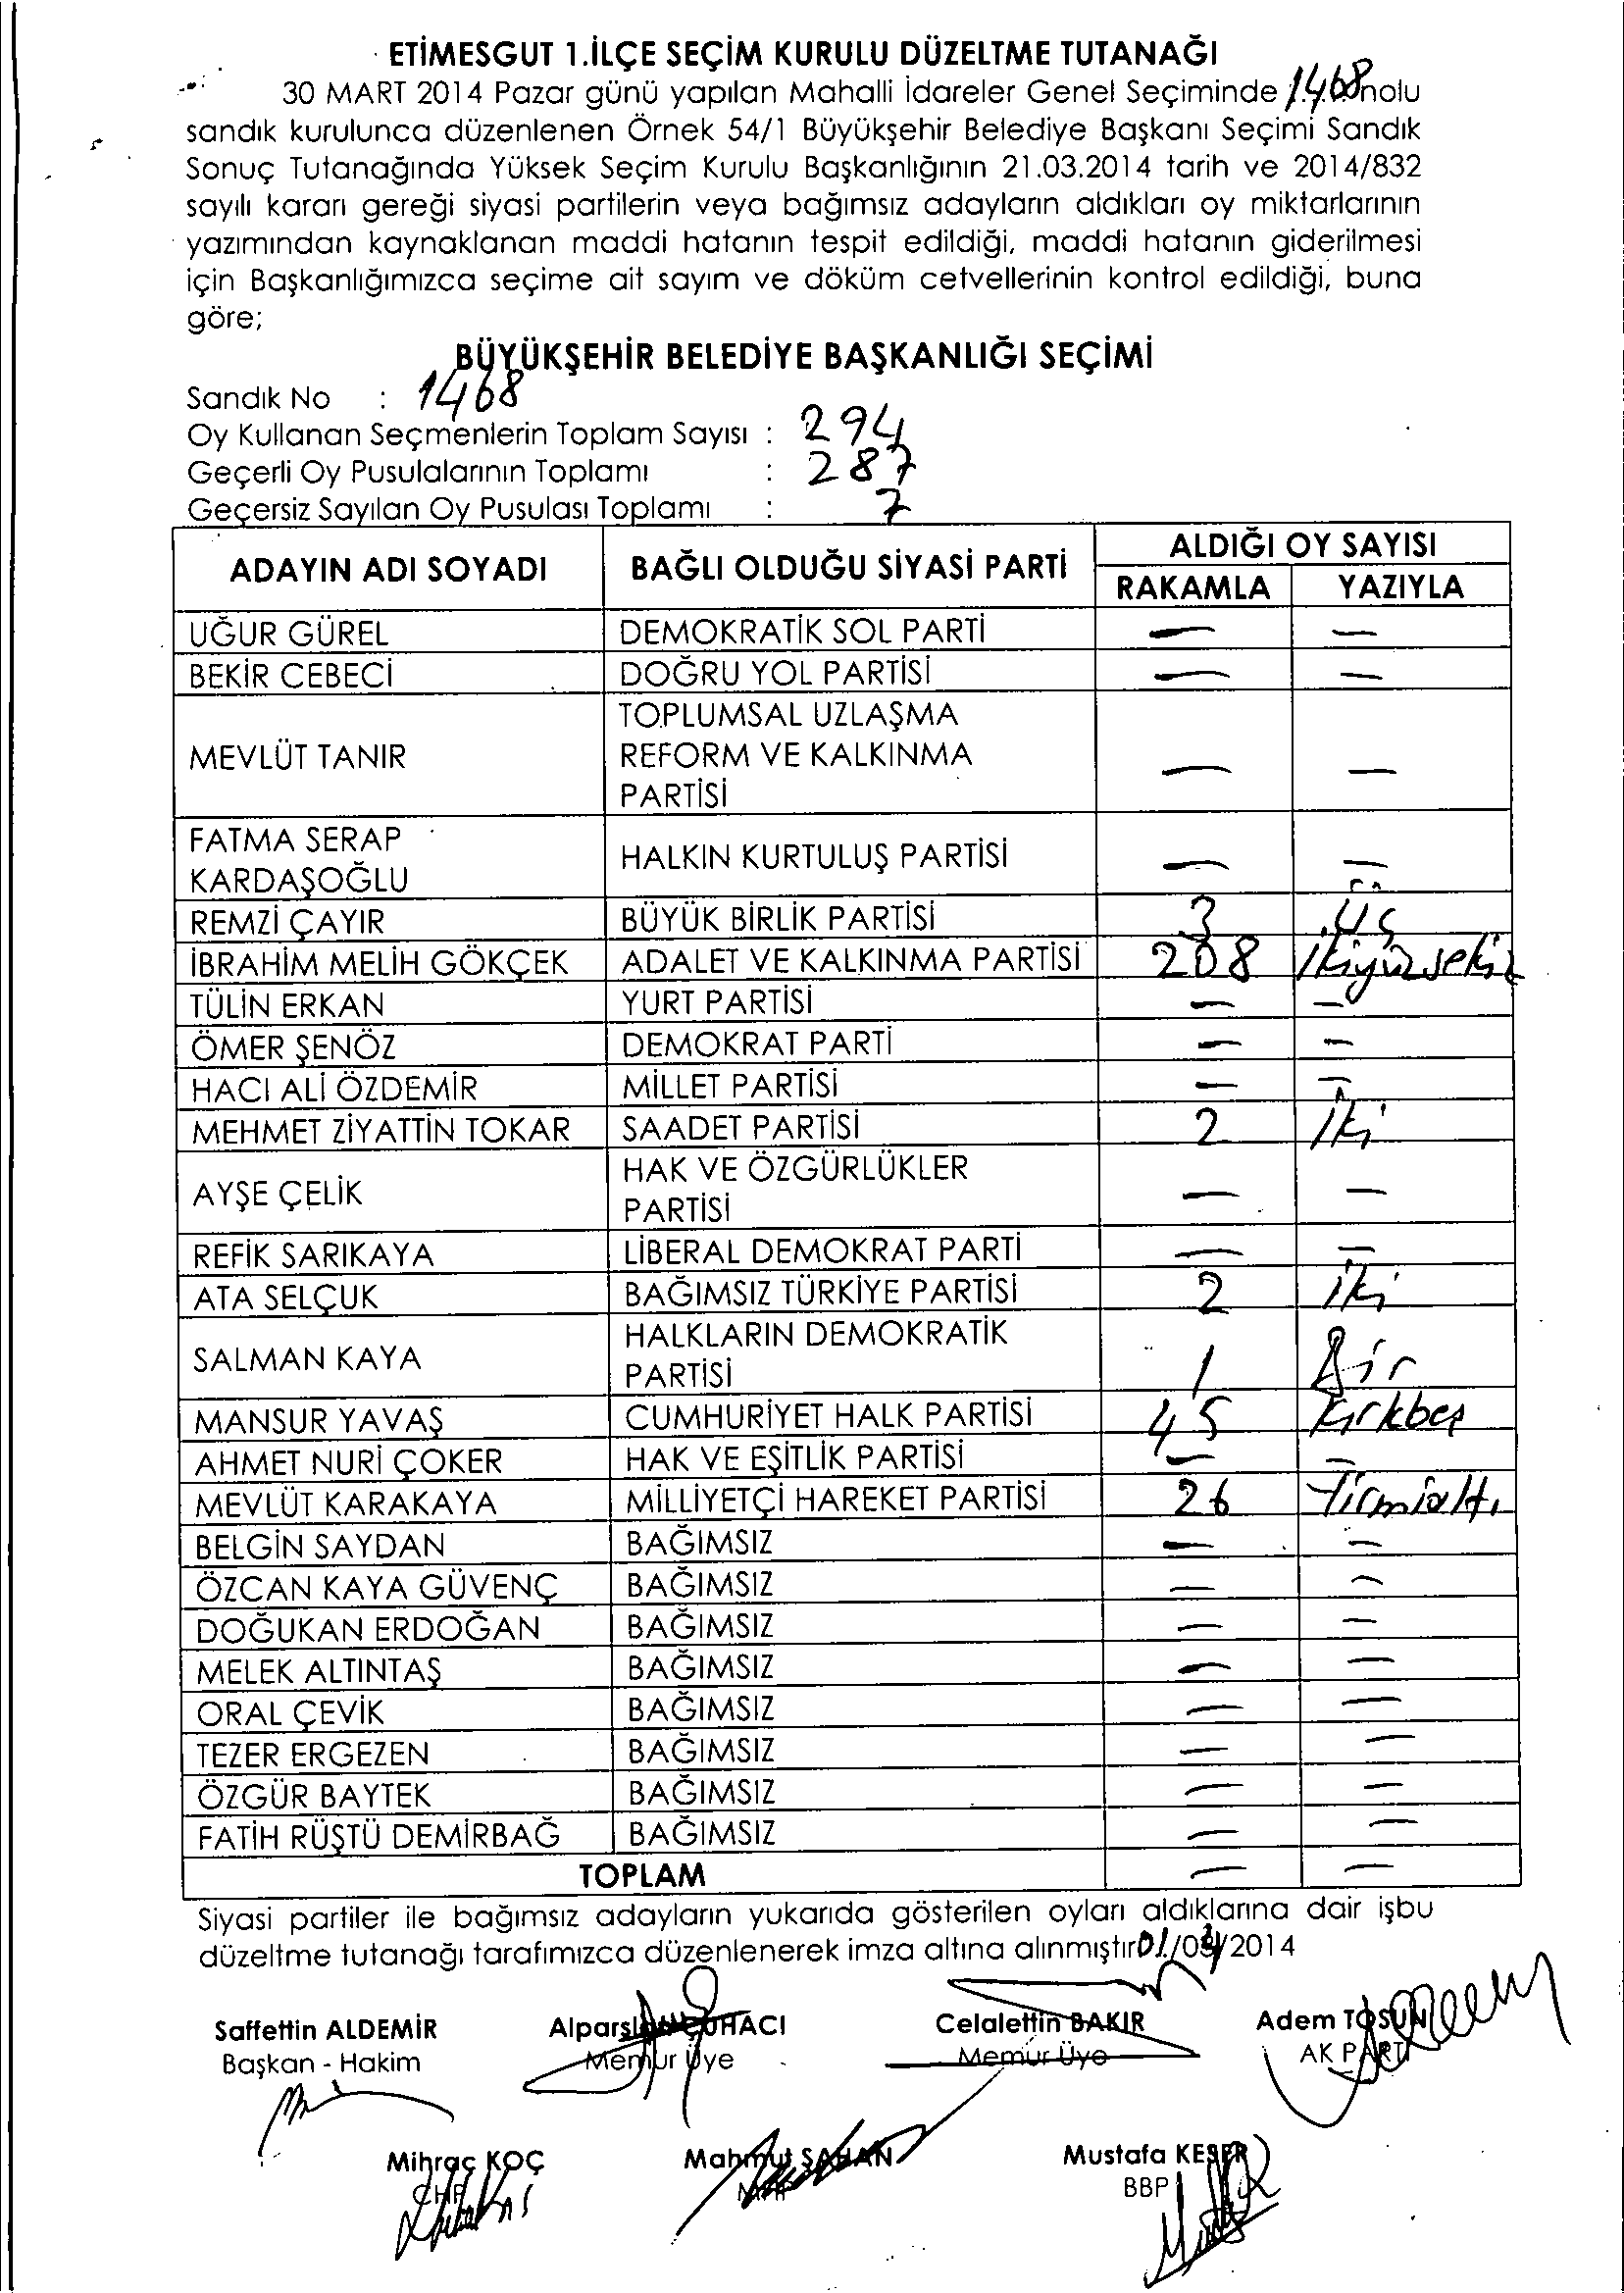 ETİMESGUT 1.İLÇE SEÇİM KURULU DÜZELTME TUTANAĞI
30 MART 2014 Pazar günü yapılan Mahalli İdareler Genel Seçiminde 1468 nolu
sandık kurulunca düzenlenen Örnek 54/1 Büyükşehir Belediye Başkanı Seçimi Sandık
Sonuç Tutanağında Yüksek Seçim Kurulu Başkanlığının 21.03.2014 tarih ve 2014/832
sayılı kararı gereği siyasi partilerin veya bağımsız adayların aldıkları oy miktarlarının
yazımından kaynaklanan maddi hatanın tespit edildiği, maddi hatanın giderilmesi
için Başkanlığımızca seçime ait sayım ve döküm cetvellerinin kontrol edildiği, buna
göre;
BÜYÜKŞEHİR BELEDİYE BAŞKANLIĞI SEÇİMİ
Sandık No : 1468
Oy Kullanan Seçmenlerin Toplam Sayısı : 294
Geçerli Oy Pusulalarının Toplamı : 287
Geçersiz Sayılan Oy Pusulası Toplamı : 7
ADAYIN ADI SOYADI BAĞLI OLDUĞU SİYASİ PARTİ ALDIĞI OY SAYISI
RAKAMLA YAZIYLA
UĞUR GÜREL DEMOKRATİK SOL PARTİ — —
BEKİR CEBECİ DOĞRU YOL PARTİSİ — —
MEVLÜT TANIR TOPLUMSAL UZLAŞMA
REFORM VE KALKINMA
PARTİSİ — —
FATMA SERAP
KARDAŞOĞLU HALKIN KURTULUŞ PARTİSİ — —
REMZİ ÇAYIR BÜYÜK BİRLİK PARTİSİ 3 Üç
İBRAHİM MELİH GÖKÇEK ADALET VE KALKINMA PARTİSİ 208 İkiyüzsekiz
TÜLİN ERKAN YURT PARTİSİ — —
ÖMER ŞENÖZ DEMOKRAT PARTİ — —
HACI ALİ ÖZDEMİR MİLLET PARTİSİ — —
MEHMET ZİYATTİN TOKAR SAADET PARTİSİ 2 İki
AYŞE ÇELİK HAK VE ÖZGÜRLÜKLER
PARTİSİ — —
REFİK SARIKAYA LİBERAL DEMOKRAT PARTİ — —
ATA SELÇUK BAĞIMSIZ TÜRKİYE PARTİSİ 2 İki
SALMAN KAYA HALKLARIN DEMOKRATİK
PARTİSİ 1 Bir
MANSUR YAVAŞ CUMHURİYET HALK PARTİSİ 45 Kırkbeş
AHMET NURİ ÇOKER HAK VE EŞİTLİK PARTİSİ — —
MEVLÜT KARAKAYA MİLLİYETÇİ HAREKET PARTİSİ 26 Yirmialtı
BELGİN SAYDAN BAĞIMSIZ — —
ÖZCAN KAYA GÜVENÇ BAĞIMSIZ — —
DOĞUKAN ERDOĞAN BAĞIMSIZ — —
MELEK ALTINTAŞ BAĞIMSIZ — —
ORAL ÇEVİK BAĞIMSIZ — —
TEZER ERGEZEN BAĞIMSIZ — —
ÖZGÜR BAYTEK BAĞIMSIZ — —
FATİH RÜŞTÜ DEMİRBAĞ BAĞIMSIZ — —
TOPLAM — —
Siyasi partiler ile bağımsız adayların yukarıda gösterilen oyları aldıklarına dair işbu
düzeltme tutanağı tarafımızca düzenlenerek imza altına alınmıştır 01/04/2014
Saffettin ALDEMİR Alparslan ÇUHACI Celalettin BAKIR Adem TOSUN
Başkan - Hakim Memur Üye Memur Üye AK PARTİ
Mihraç KOÇ Mahmut ŞAHAN Mustafa KESER
CHP MHP BBP